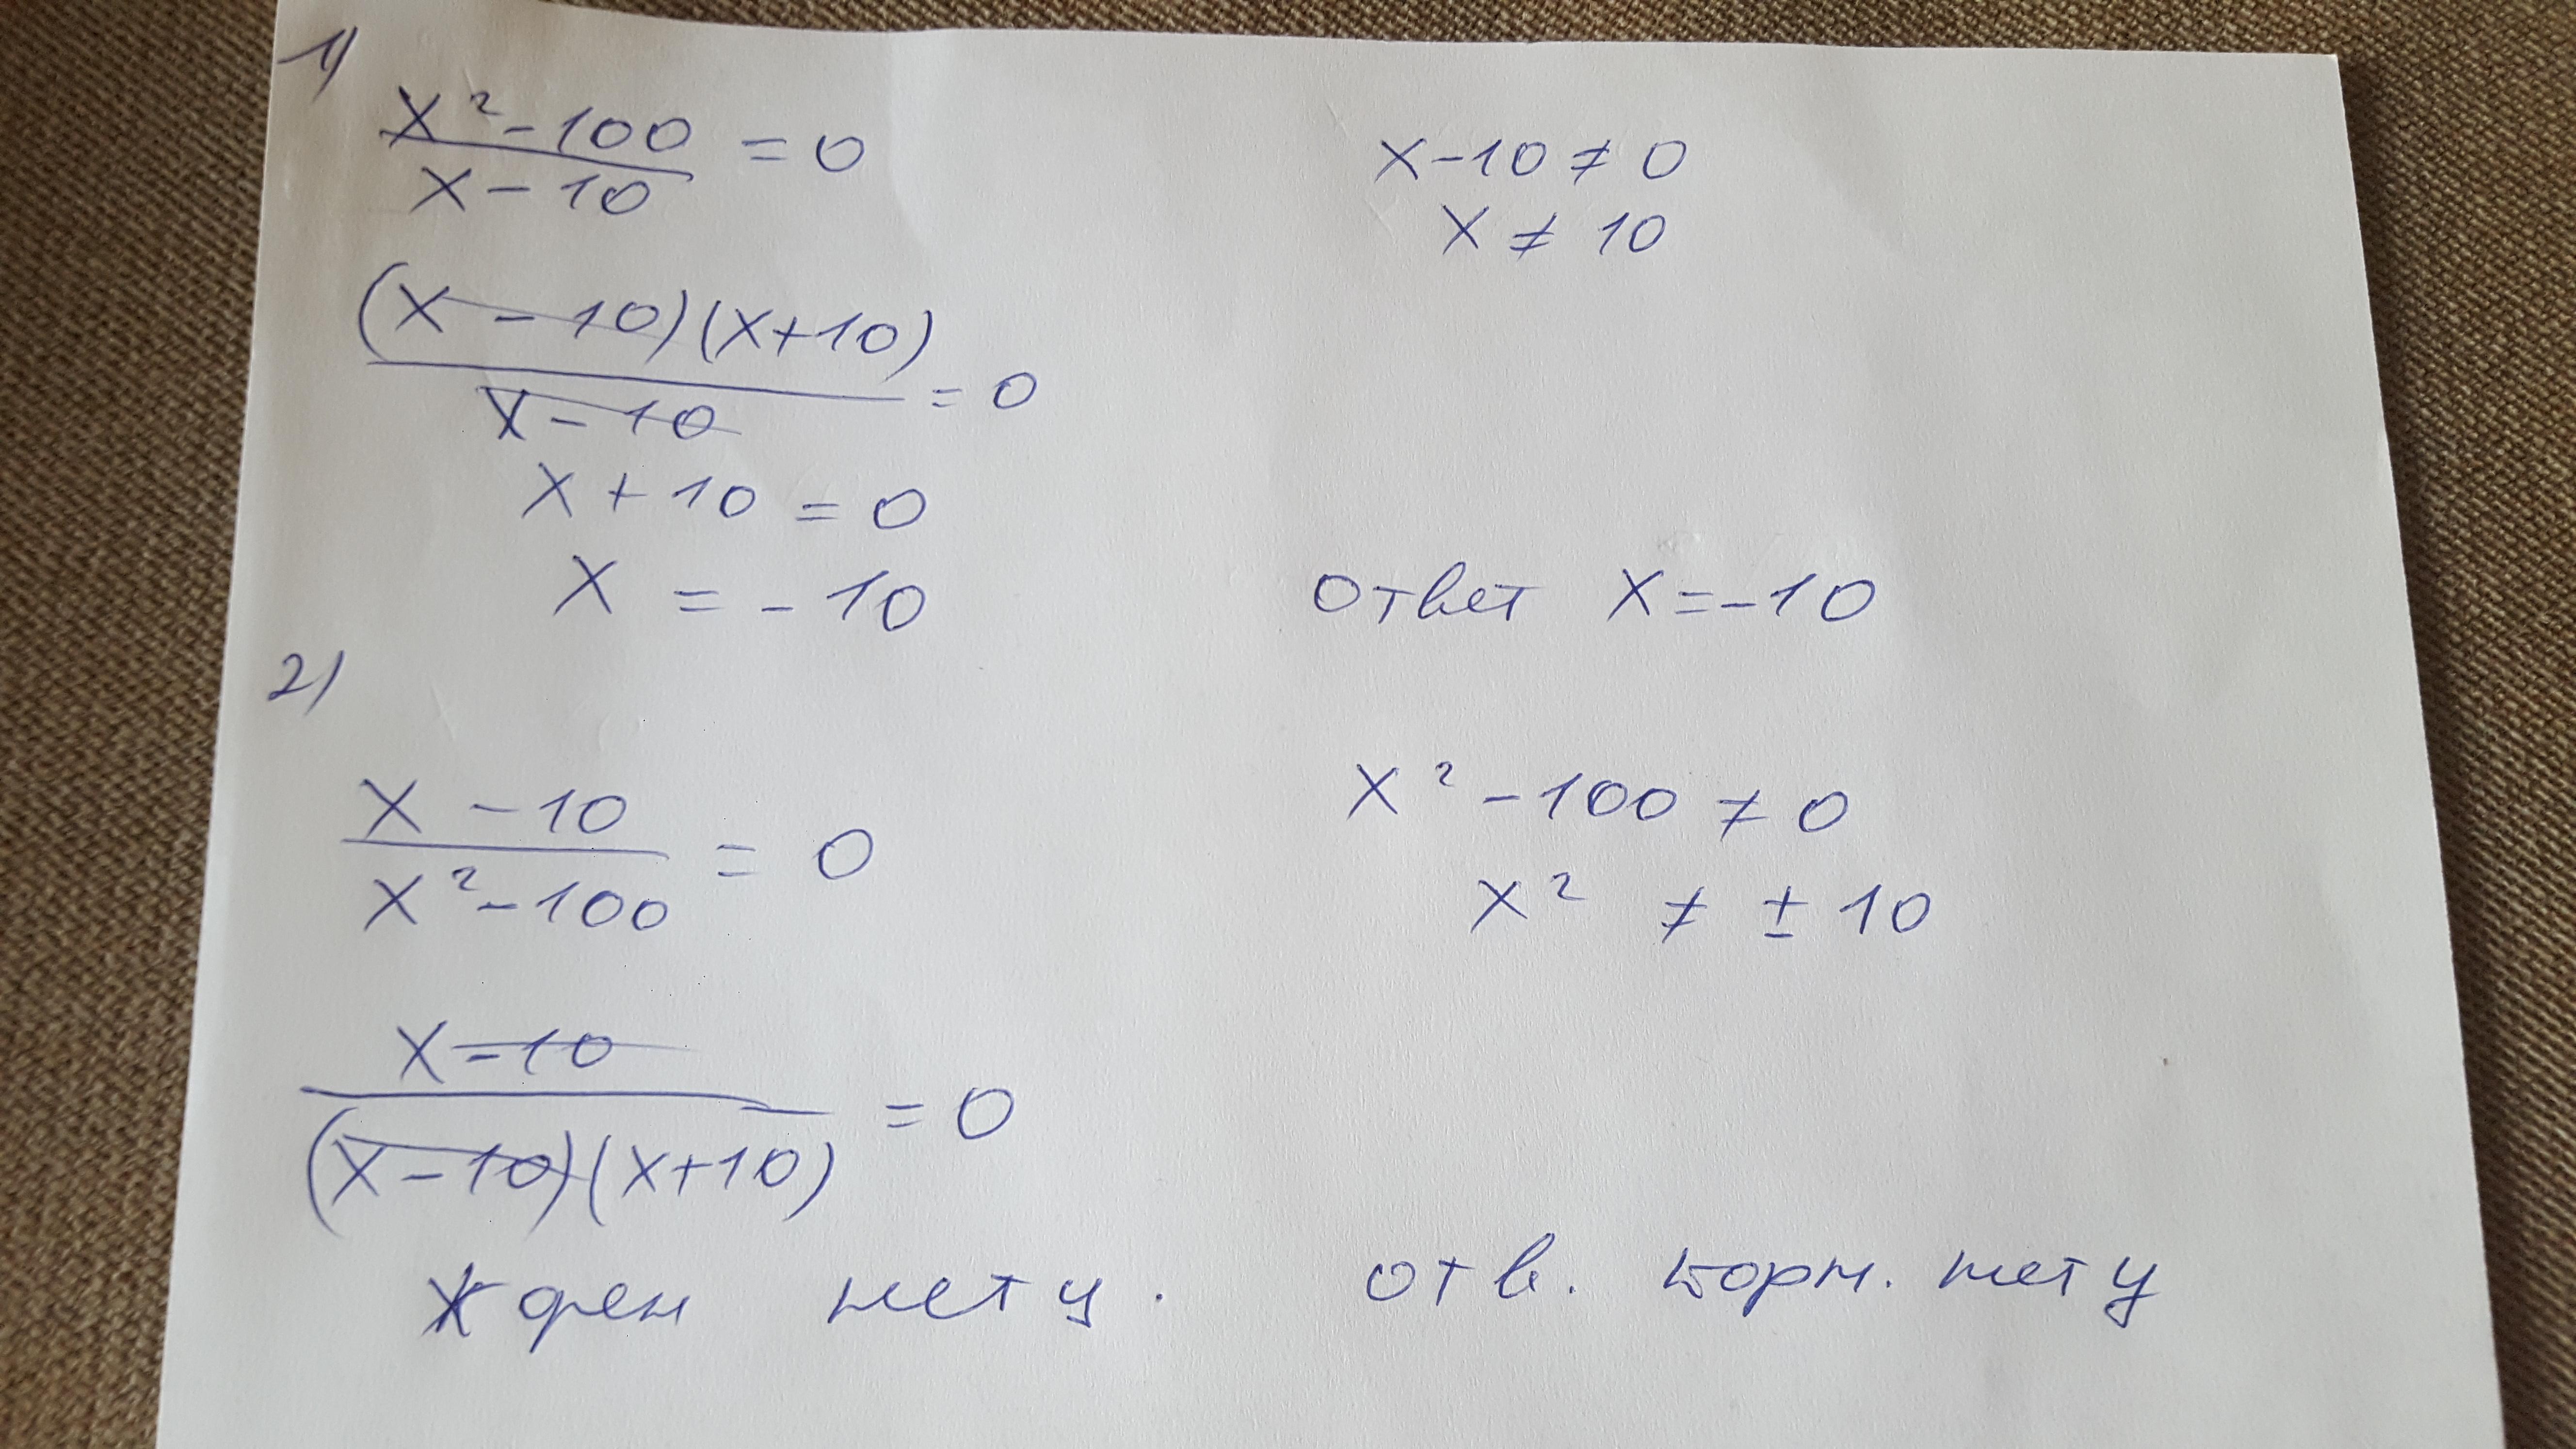 1)
x² - 100 / x - 10 = 0
x - 10 ≠ 0
x ≠ 10
(x - 10)(x + 10) / x - 10 = 0
x + 10 = 0
x = - 10
ответ x = - 10
2)
x - 10 / x² - 100 = 0
x² - 100 ≠ 0
x² ≠ ± 10
x - 10 / (x - 10)(x + 10) = 0
нету.
отв. корн. нету